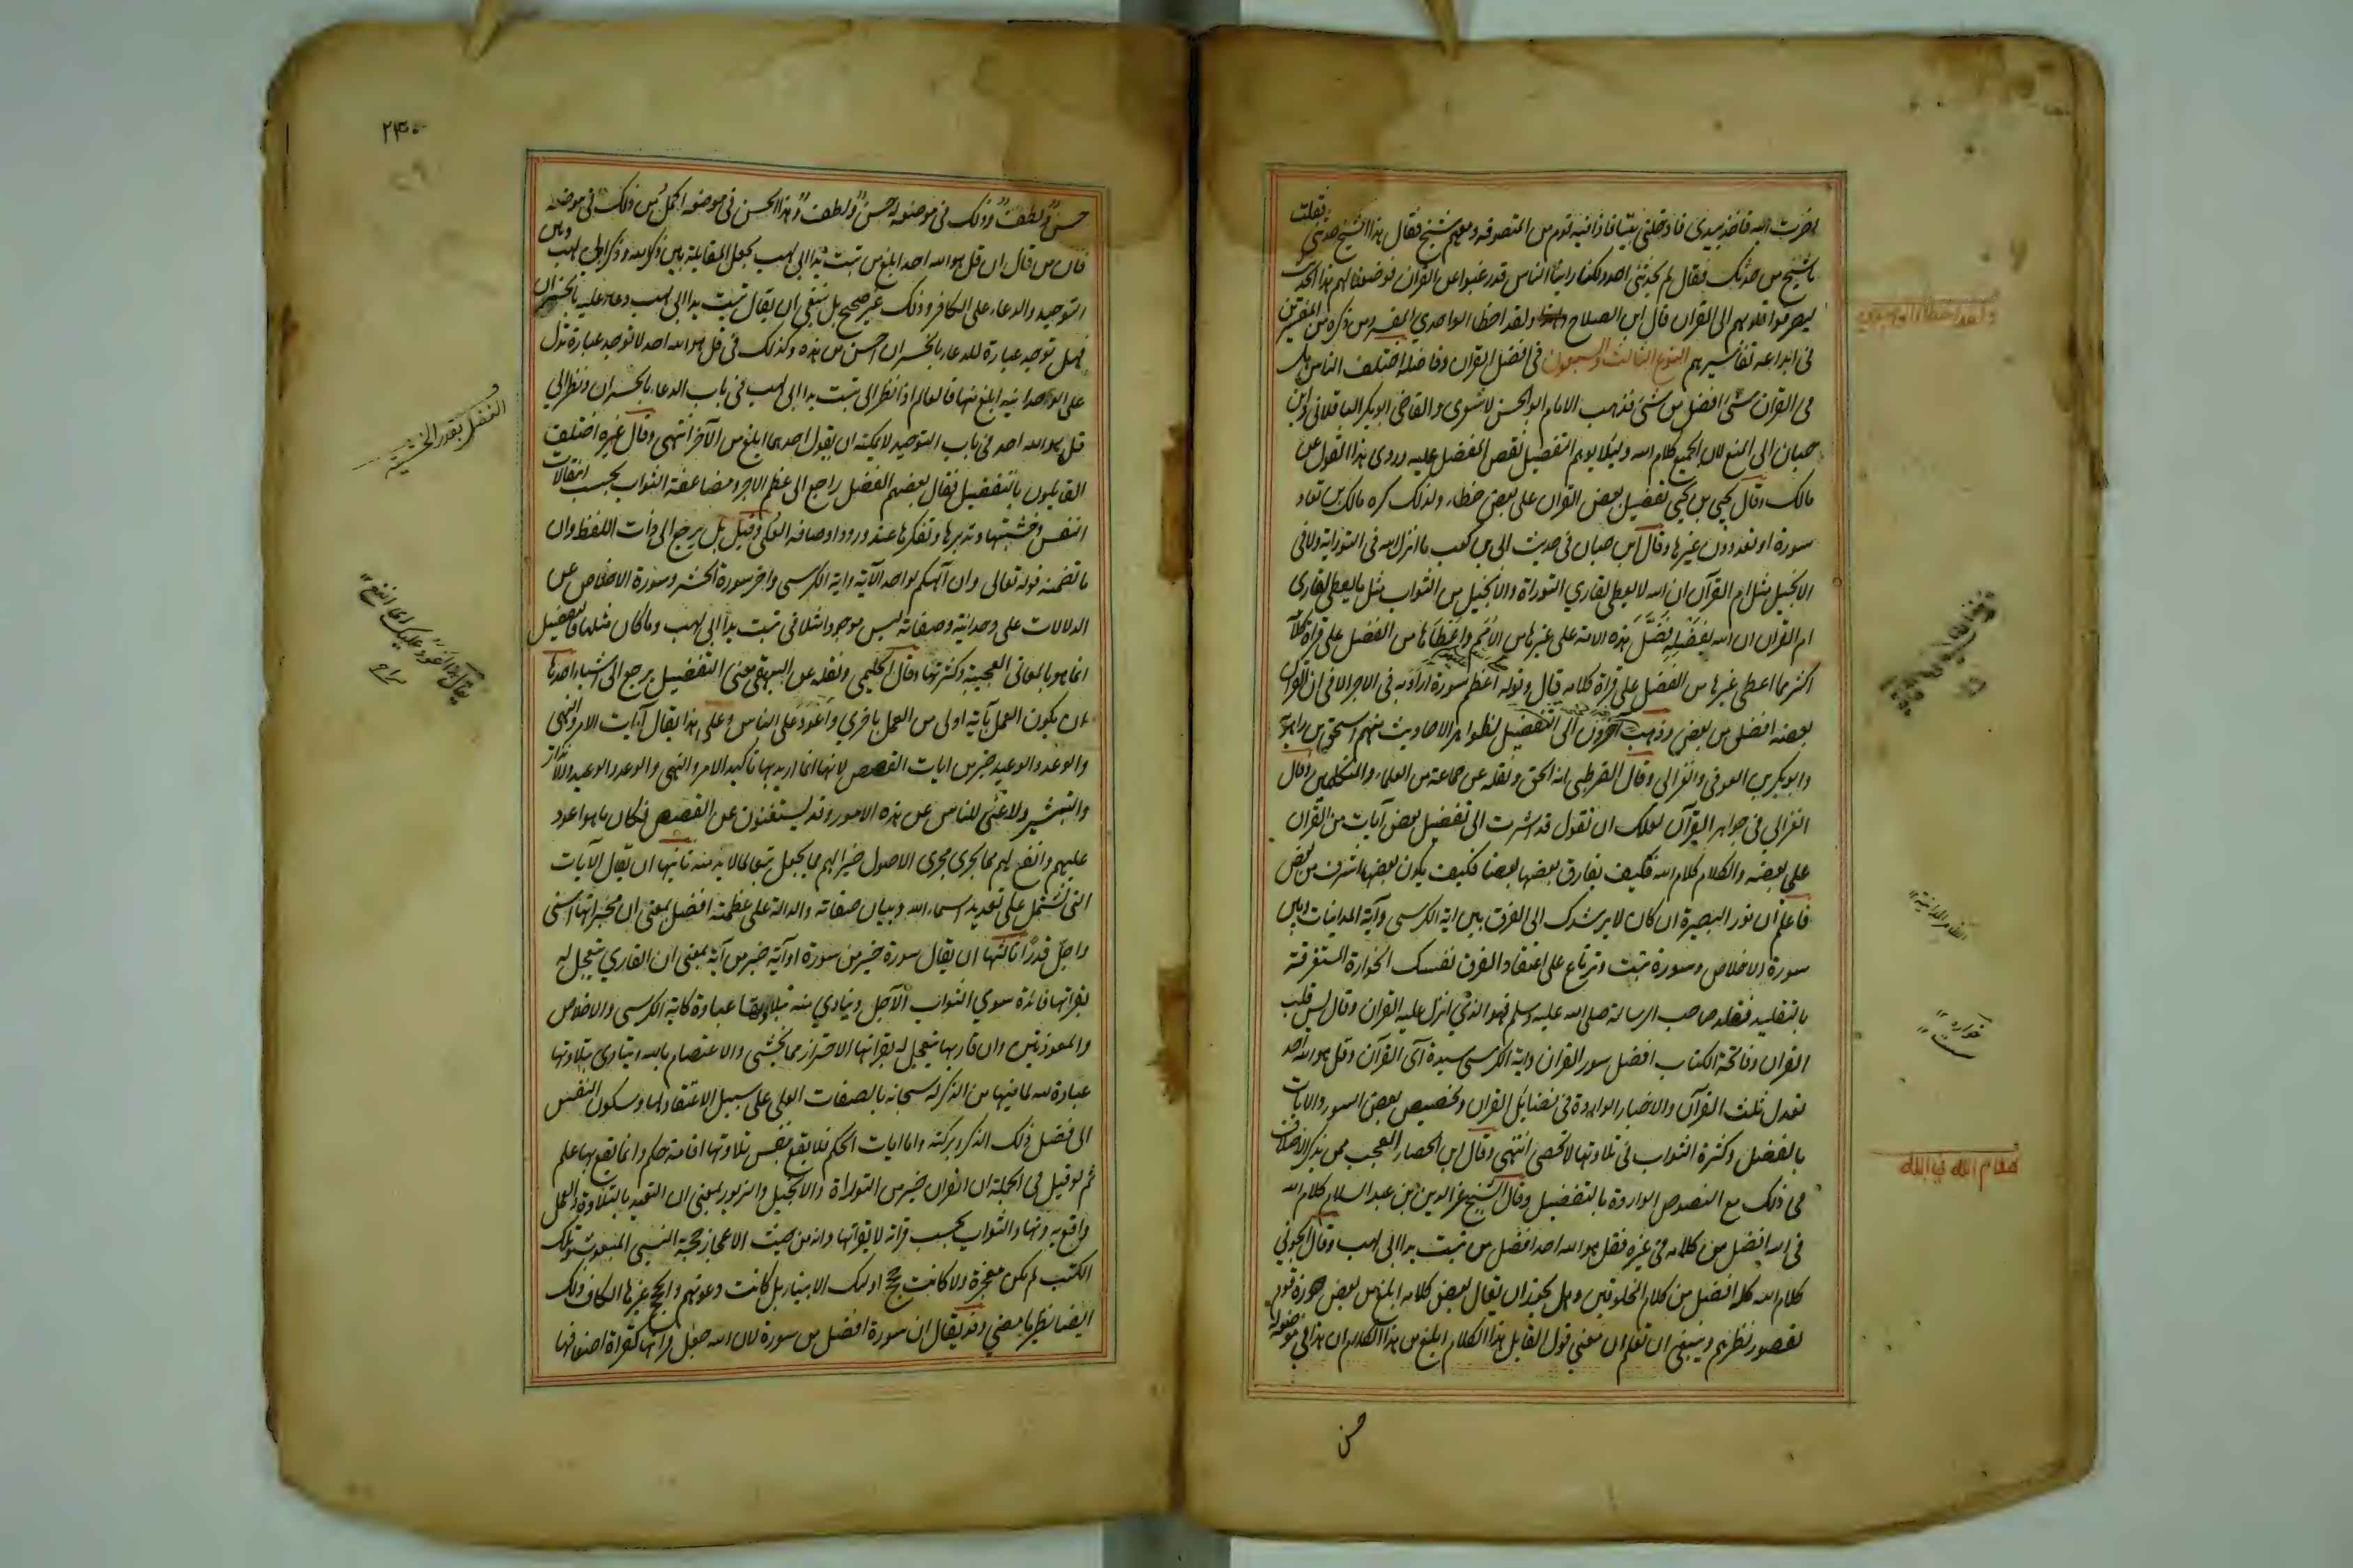 اخرت اليه فاخذ بيدى فادخلنى بيتا فاذا فيه قوم من المتصوفه ومعهم شيخ فقال هذا الشيخ حدثنى فقلت
ياشيخ من حدثك فقال لم يحدثنى احد ولكنا راينا الناس قد رغبوا عن القران فوضعنا لهم هذا الحديث
ليصرفوا قلوبهم الى القران قال ابن الصلاح ولقد اخطا الواحدي المفسر ومن ذكره من المفسرين
فى ايداعه تفاسيرهم النوع الثالث والسبعون فى افضل القران وفاضله اختلف الناس هل
فى القران شئ افضل من شئ فذهب الامام ابوالحسن لاشعرى والقاضى ابوبكر الباقلانى وابن
حبان الى المنع لان الجميع كلام الله وليلا يوهم التفضيل نقص المفضل عليه وروى هذا القول عن
مالك وقال يحيى بن يحيى تفضيل بعض القران على بعض خطاء ولذلك كره مالك بن تعاد
سورة او تعدد دون غيرها وقال ابن حبان فى حديث ابى بن كعب ما انزل الله فى التوراية ولا فى
الانجيل مثل ام القرآن ان الله لا يعطى لقاري التوراة والانجيل من الثواب مثل ما يعطى لقارى
ام القران ان الله بفضله فضّل هذه الامة على غيرها من الامم واعطاها من الفضل على قراة كلامه
اكثر مما اعطى غيرها من الفضل على قراة كلامه قال وقوله اعظم سورة اراد به فى الاجر لا فى ان القران
بعضه افضل من بعض وذهب آخرون الى التفضيل لظواهر الاحاديث منهم اسحق بن راهويه
وابوبكر بن العربى والغزالى وقال القرطبى انه الحق ونقله عن جماعة من العلماء والمتكلمين وقال
الغزالي فى جواهر القرآن لعلك ان تقول قد اشرت الى تفضيل بعض آيات من القران
على بعضه والكلام كلام الله فكيف يفارق بعضها بعضا فكيف يكون بعضها اشرف من بعض
فاعلم ان نور البصيرة ان كان لا يرشدك الى الفرق بين اية الكرسى وآية المداينات وبين
سورة الاخلاص وسورة تبت وترتاع على اعتقاد الفرق نفسك الخوارة المستغرقة
بالتقليد فقلد صاحب الرسالة صلى الله عليه وسلم فهو الذي انزل عليه القران وقال يس قلب
القران وفاتحة الكتاب افضل سور القران واية الكرسى سيدة آى القرآن وقل هو الله احد
تعدل ثلث القرآن والاخبار الواردة فى فضائل القران وتخصيص بعض السور والايات
بالفضل وكثرة الثواب فى تلاوتها لا تحصى انتهى وقال ابن الحصار العجب ممن يذكر الاختلاف
فى ذلك مع النصوص الواردة بالتفضيل وقال الشيخ عز الدين بن عبد السلام كلام الله
فى الله افضل من كلامه فى غيره فقل هو الله احد افضل من تبت يدا ابى لهب وقال الجوينى
كلام الله كله افضل من كلام المخلوقين وهل يجوز ان يقال بعض كلامه ابلغ من بعض جوزه قوم
لقصور نظرهم وينبغى ان تعلم ان معنى قول القايل هذا الكلام ابلغ من هذا الكلام ان هذا فى موضعه له
حسن
مقام الله في الله
۲۳۰
حسن ولطف وذلك فى موضعه له حسن ولطف وهذا الحسن فى موضعه اكمل من ذلك فى موضعه
فان من قال ان قل هو الله احد ابلغ من تبت يدا ابى لهب يجعل المقابلة بين ذكر الله وذكر ابى لهب وبين
التوحيد والدعاء على الكافر وذلك غير صحيح بل ينبغى ان يقال تبت يدا ابى لهب دعاء عليه بالخسران
فهل توجد عبارة للدعاء بالخسران احسن من هذه وكذلك فى قل هو الله احد لا توجد عبارة تدل
على الوحدانيه ابلغ منها فالعالم اذا نظر الى تبت يدا ابى لهب فى باب الدعاء بالخسران ونظر الى
قل هو الله احد فى باب التوحيد لا يمكنه ان يقول احدهما ابلغ من الآخر انتهى وقال غيره اختلف
القايلون بالتفضيل فقال بعضهم الفضل راجع الى عظم الاجر ومضاعفة الثواب بحسب انتقالات
النفس وخشيتها وتدبرها وتفكرها عند ورود اوصافه العلى وقيل بل يرجع الى ذات اللفظ وان
ما تضمنه قوله تعالى وان آلهكم لواحد الآية واية الكرسى واخر سورة الحشر وسورة الاخلاص عن
الدلالات على وحدانيته وصفاته ليس موجودا مثلا فى تبت يدا ابى لهب وماكان مثلها فالتفضيل
انما هو بالمعانى العجيبة وكثرتها وقال الحليمى ونقله عن البيهقى معنى التفضيل يرجع الى اشياء احدها
ان يكون العمل بآية اولى من العمل باخرى واعود على الناس وعلى هذا يقال آيات الامر والنهى
والوعد والوعيد خير من ايات القصص لانها انما اريد بها تاكيد الامر والنهى والوعد والوعيد والانذار
والتبشير ولا غنى للناس عن هذه الامور وقد يستغنون عن القصص فكان ما هو اعود
عليهم وانفع لهم مما يجرى مجرى الاصول خيرا لهم مما يجعل تبعا لما لا بد منه ثانيها ان يقال الآيات
التى تشتمل على تعديد اسماء الله وبيان صفاته والدالة على عظمته افضل بمعنى ان مخبراتها اسنى
واجلّ قدرًا ثالثها ان يقال سورة خير من سورة او آية خير من آية بمعنى ان القاري يتعجل له
بقراتها فائدة سوى الثواب الآجل ويتادي منه بتلاوتها عبادة كاية الكرسى والاخلاص
والمعوذتين وان قاريها يتعجل له بقراتها الاحتراز مما يخشى والاعتصام بالله ويتادى بتلاوتها
عبادة لله لما فيها من الذكر له سبحانه بالصفات العلى على سبيل الاعتقاد لها وسكون النفس
الى فضل ذلك الذكر وبركته واما ايات الحكم فلا يقع بنفس تلاوتها اقامة حكم وانما يقع بها علم
ثم لو قيل فى الجملة ان القران خير من التوراة والانجيل والزبور بمعنى ان التعبد بالتلاوة والعمل
واقع به دونها والثواب بحسب قراته لا بقراتها وانه من حيث الاعجاز حجة النبى المبعوث وتلك
الكتب لم تكن معجزة ولا كانت حجج اوليك الانبياء بل كانت دعوتهم والحجج غيرها لكان ذلك
ايضا نظير ما مضى وقد يقال ان سورة افضل من سورة لان الله جعل قراتها كقراة اضعافها
الفضل بقدر الخشية
يقال هذا اعود عليك اى انفع